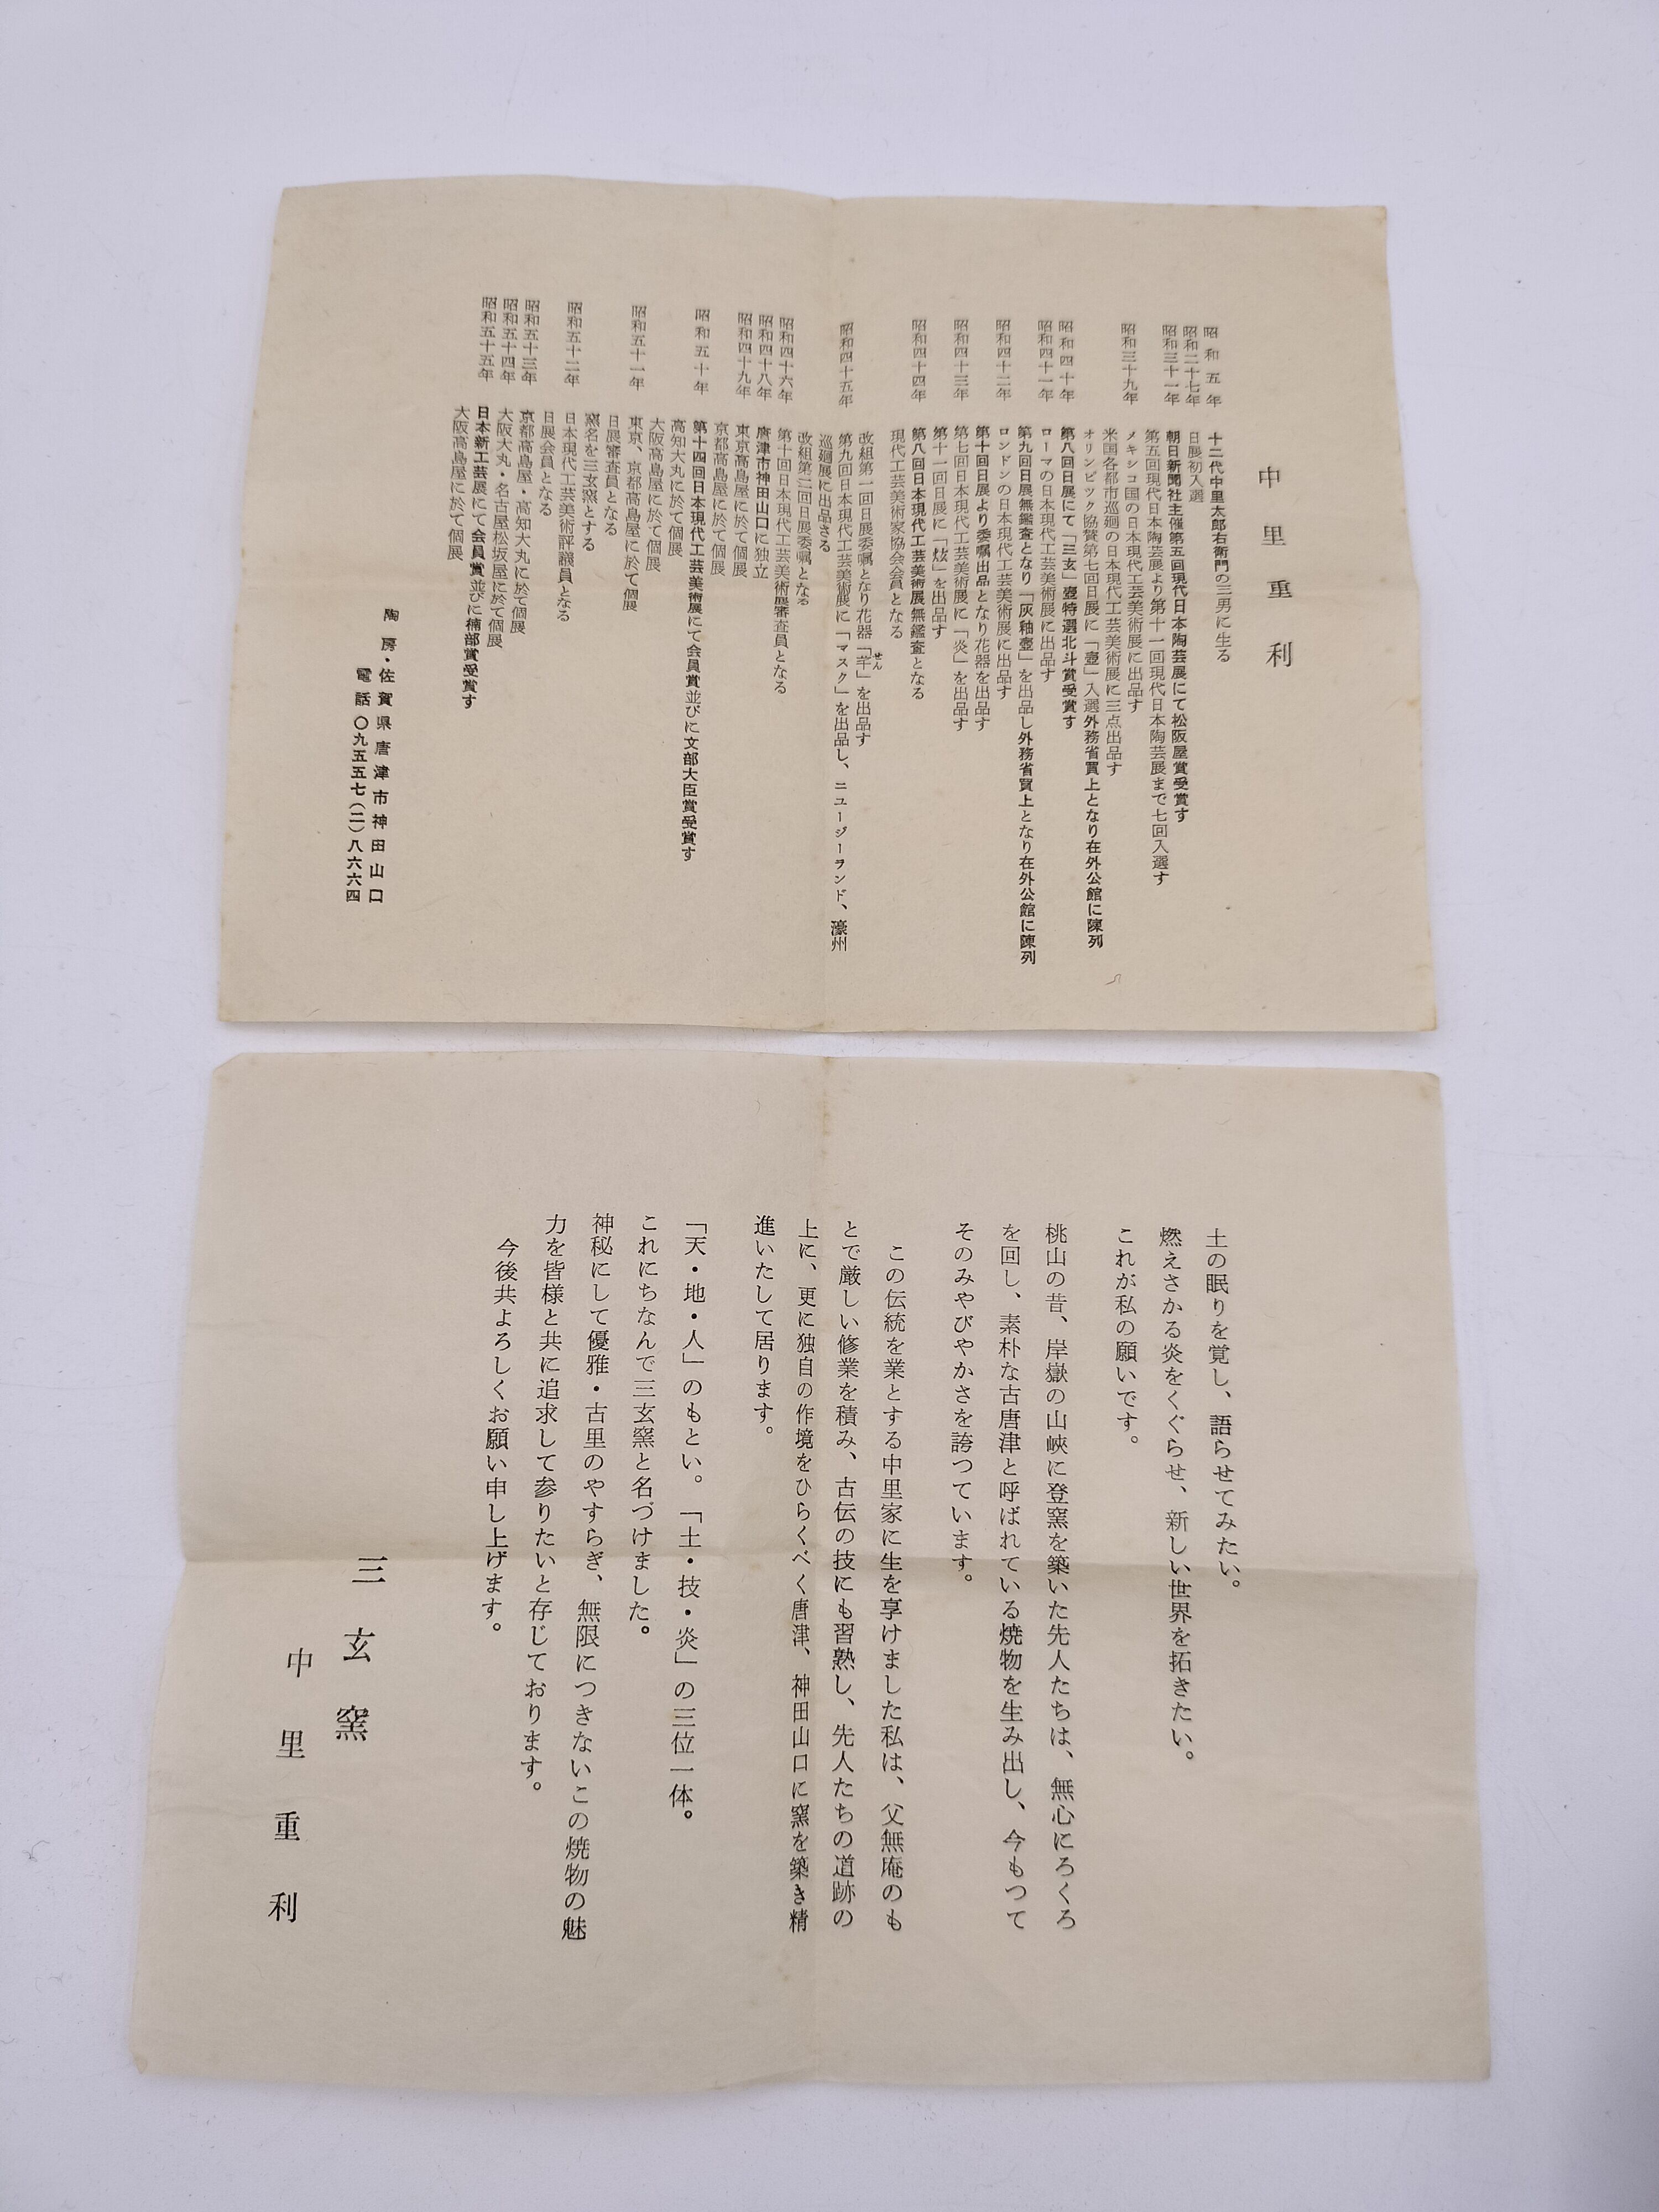 中里重利
昭和五年 十二代中里太郎右衛門の三男に生る
昭和二十七年 日展初入選
昭和三十一年 朝日新聞社主催第五回現代日本陶芸展にて松阪屋賞受賞す
第五回現代日本陶芸展より第十一回現代日本陶芸展まで七回入選す
昭和三十九年 メキシコ国の日本現代工芸美術展に出品す
米国各都市巡廻の日本現代工芸美術展に三点出品す
オリンピツク協賛第七回日展に「壺」入選外務省買上となり在外公館に陳列
昭和四十年 第八回日展にて「三玄」壺特選北斗賞受賞す
昭和四十一年 ローマの日本現代工芸美術展に出品す
第九回日展無鑑査となり「灰釉壺」を出品し外務省買上となり在外公館に陳列
昭和四十二年 ロンドンの日本現代工芸美術展に出品す
第十回日展より委嘱出品となり花器を出品す
昭和四十三年 第七回日本現代工芸美術展に「炎」を出品す
第十一回日展に「炫」を出品す
昭和四十四年 第八回日本現代工芸美術展無鑑査となる
現代工芸美術家協会会員となる
改組第一回日展委嘱となり花器「」を出品す
せん
昭和四十五年 第九回日本現代工芸美術展に「マスク」を出品し、ニユージーランド、濠州
巡廻展に出品さる
改組第二回日展委嘱となる
昭和四十六年 第十回日本現代工芸美術展審査員となる
昭和四十八年 唐津市神田山口に独立
昭和四十九年 東京高島屋に於て個展
京都高島屋に於て個展
昭和五十年 第十四回日本現代工芸美術展にて会員賞並びに文部大臣賞受賞す
高知大丸に於て個展
大阪高島屋に於て個展
昭和五十一年 東京、京都高島屋に於て個展
日展審査員となる
窯名を三玄窯とする
昭和五十二年 日本現代工芸美術評議員となる
日展会員となる
昭和五十三年 京都高島屋・高知大丸に於て個展
昭和五十四年 大阪大丸・名古屋松坂屋に於て個展
昭和五十五年 日本新工芸展にて会員賞並びに楠部賞受賞す
大阪高島屋に於て個展
陶房・佐賀県唐津市神田山口
電話〇九五五七(二)八六六四
土の眠りを覚し、語らせてみたい。
燃えさかる炎をくぐらせ、新しい世界を拓きたい。
これが私の願いです。
桃山の昔、岸嶽の山峡に登窯を築いた先人たちは、無心にろくろ
を回し、素朴な古唐津と呼ばれている焼物を生み出し、今もつて
そのみやびやかさを誇つています。
この伝統を業とする中里家に生を享けました私は、父無庵のも
とで厳しい修業を積み、古伝の技にも習熟し、先人たちの道跡の
上に、更に独自の作境をひらくべく唐津、神田山口に窯を築き精
進いたして居ります。
「天・地・人」のもとい。「土・技・炎」の三位一体。
これにちなんで三玄窯と名づけました。
神秘にして優雅・古里のやすらぎ、無限につきないこの焼物の魅
力を皆様と共に追求して参りたいと存じております。
今後共よろしくお願い申し上げます。
三玄窯
中里重利